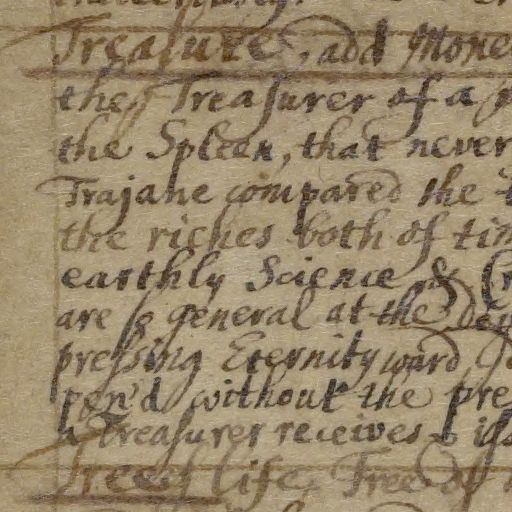 Treasure, add Mone
the Treasurer of a
the Spleen, that never
Trajane compared the
the riches both of tim
earthly Science &
are so general at the
pressing Eternity ward,
pen'd without the pre
a Treasurer receives &
Trees life, Tree of